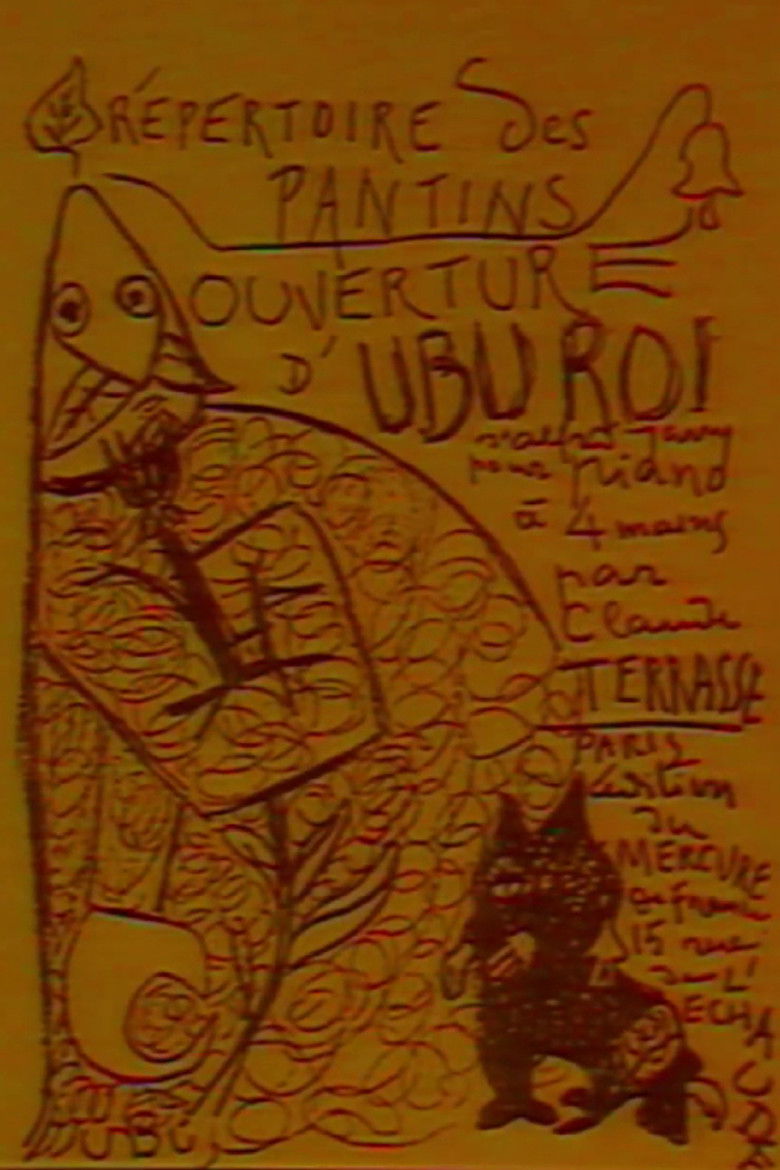 RÉPERTOIRE des
PANTINS
OUVERTURE
D'UBU ROI
pour piano
à 4 mains
par
Claude
TERRASSE
PARIS
édition
du
MERCURE
de france
15 rue
de L'
ECHAUDÉ
UBU